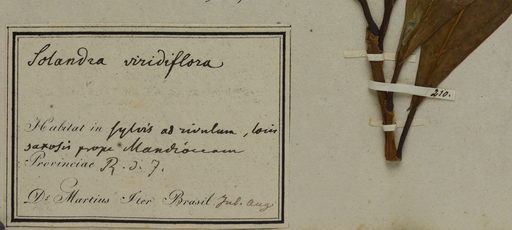 Solandra viridiflora
210.
Habitat in sylvis ad rivulum, locis
saxosis prope Mandioccam
Provinciae R. d. J.
Dr Martius Iter Brasil Jul. Aug.